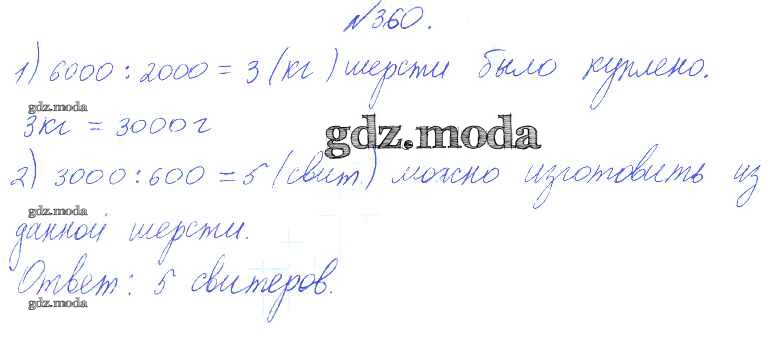 №360.
1) 6000 : 2000 = 3 (кг) шерсти было куплено.
gdz.moda
3кг = 3000г
gdz.moda
2) 3000 : 600 = 5 (свит.) можно изготовить из
gdz.moda
данной шерсти.
Ответ: 5 свитеров.
gdz.moda